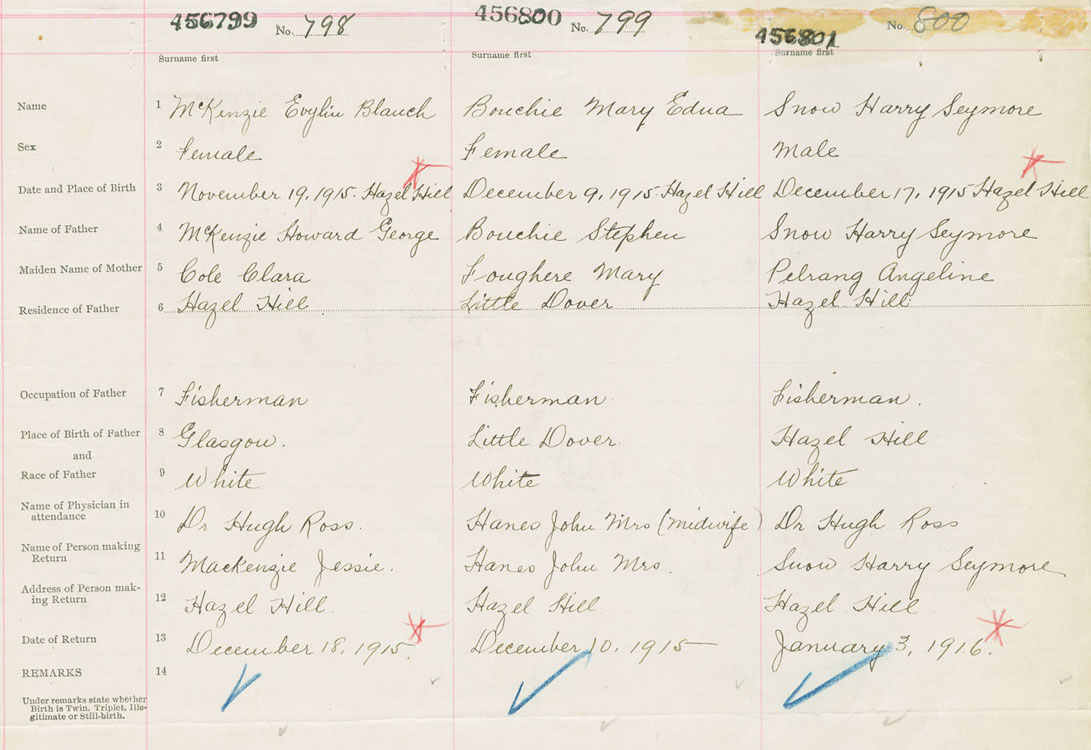 456799 No. 798 456800 No. 799 456801 No. 800
Surname first Surname first Surname first
Name 1 McKenzie Evylin Blanch Bouchie Mary Edna Snow Harry Seymore
Sex 2 Female Female Male
Date and Place of Birth 3 November 19, 1915. Hazel Hill December 9, 1915. Hazel Hill December 17, 1915 Hazel Hill
Name of Father 4 McKenzie Howard George Bouchie Stephen Snow Harry Seymore
Maiden Name of Mother 5 Cole Clara Foughere Mary Pelrang Angeline
Residence of Father 6 Hazel Hill Little Dover Hazel Hill
Occupation of Father 7 Fisherman Fisherman Fisherman.
Place of Birth of Father 8 Glasgow. Little Dover. Hazel Hill
and
Race of Father 9 White White White
Name of Physician in
attendance 10 Dr Hugh Ross. Hanes John Mrs (midwife) Dr Hugh Ross
Name of Person making
Return 11 Mackenzie Jessie. Hanes John Mrs. Snow Harry Seymore
Address of Person mak-
ing Return 12 Hazel Hill. Hazel Hill Hazel Hill
Date of Return 13 December 18, 1915. December 10, 1915 January 3, 1916.
REMARKS 14
Under remarks state whether
Birth is Twin, Triplet, Ille-
gitimate or Still-birth.